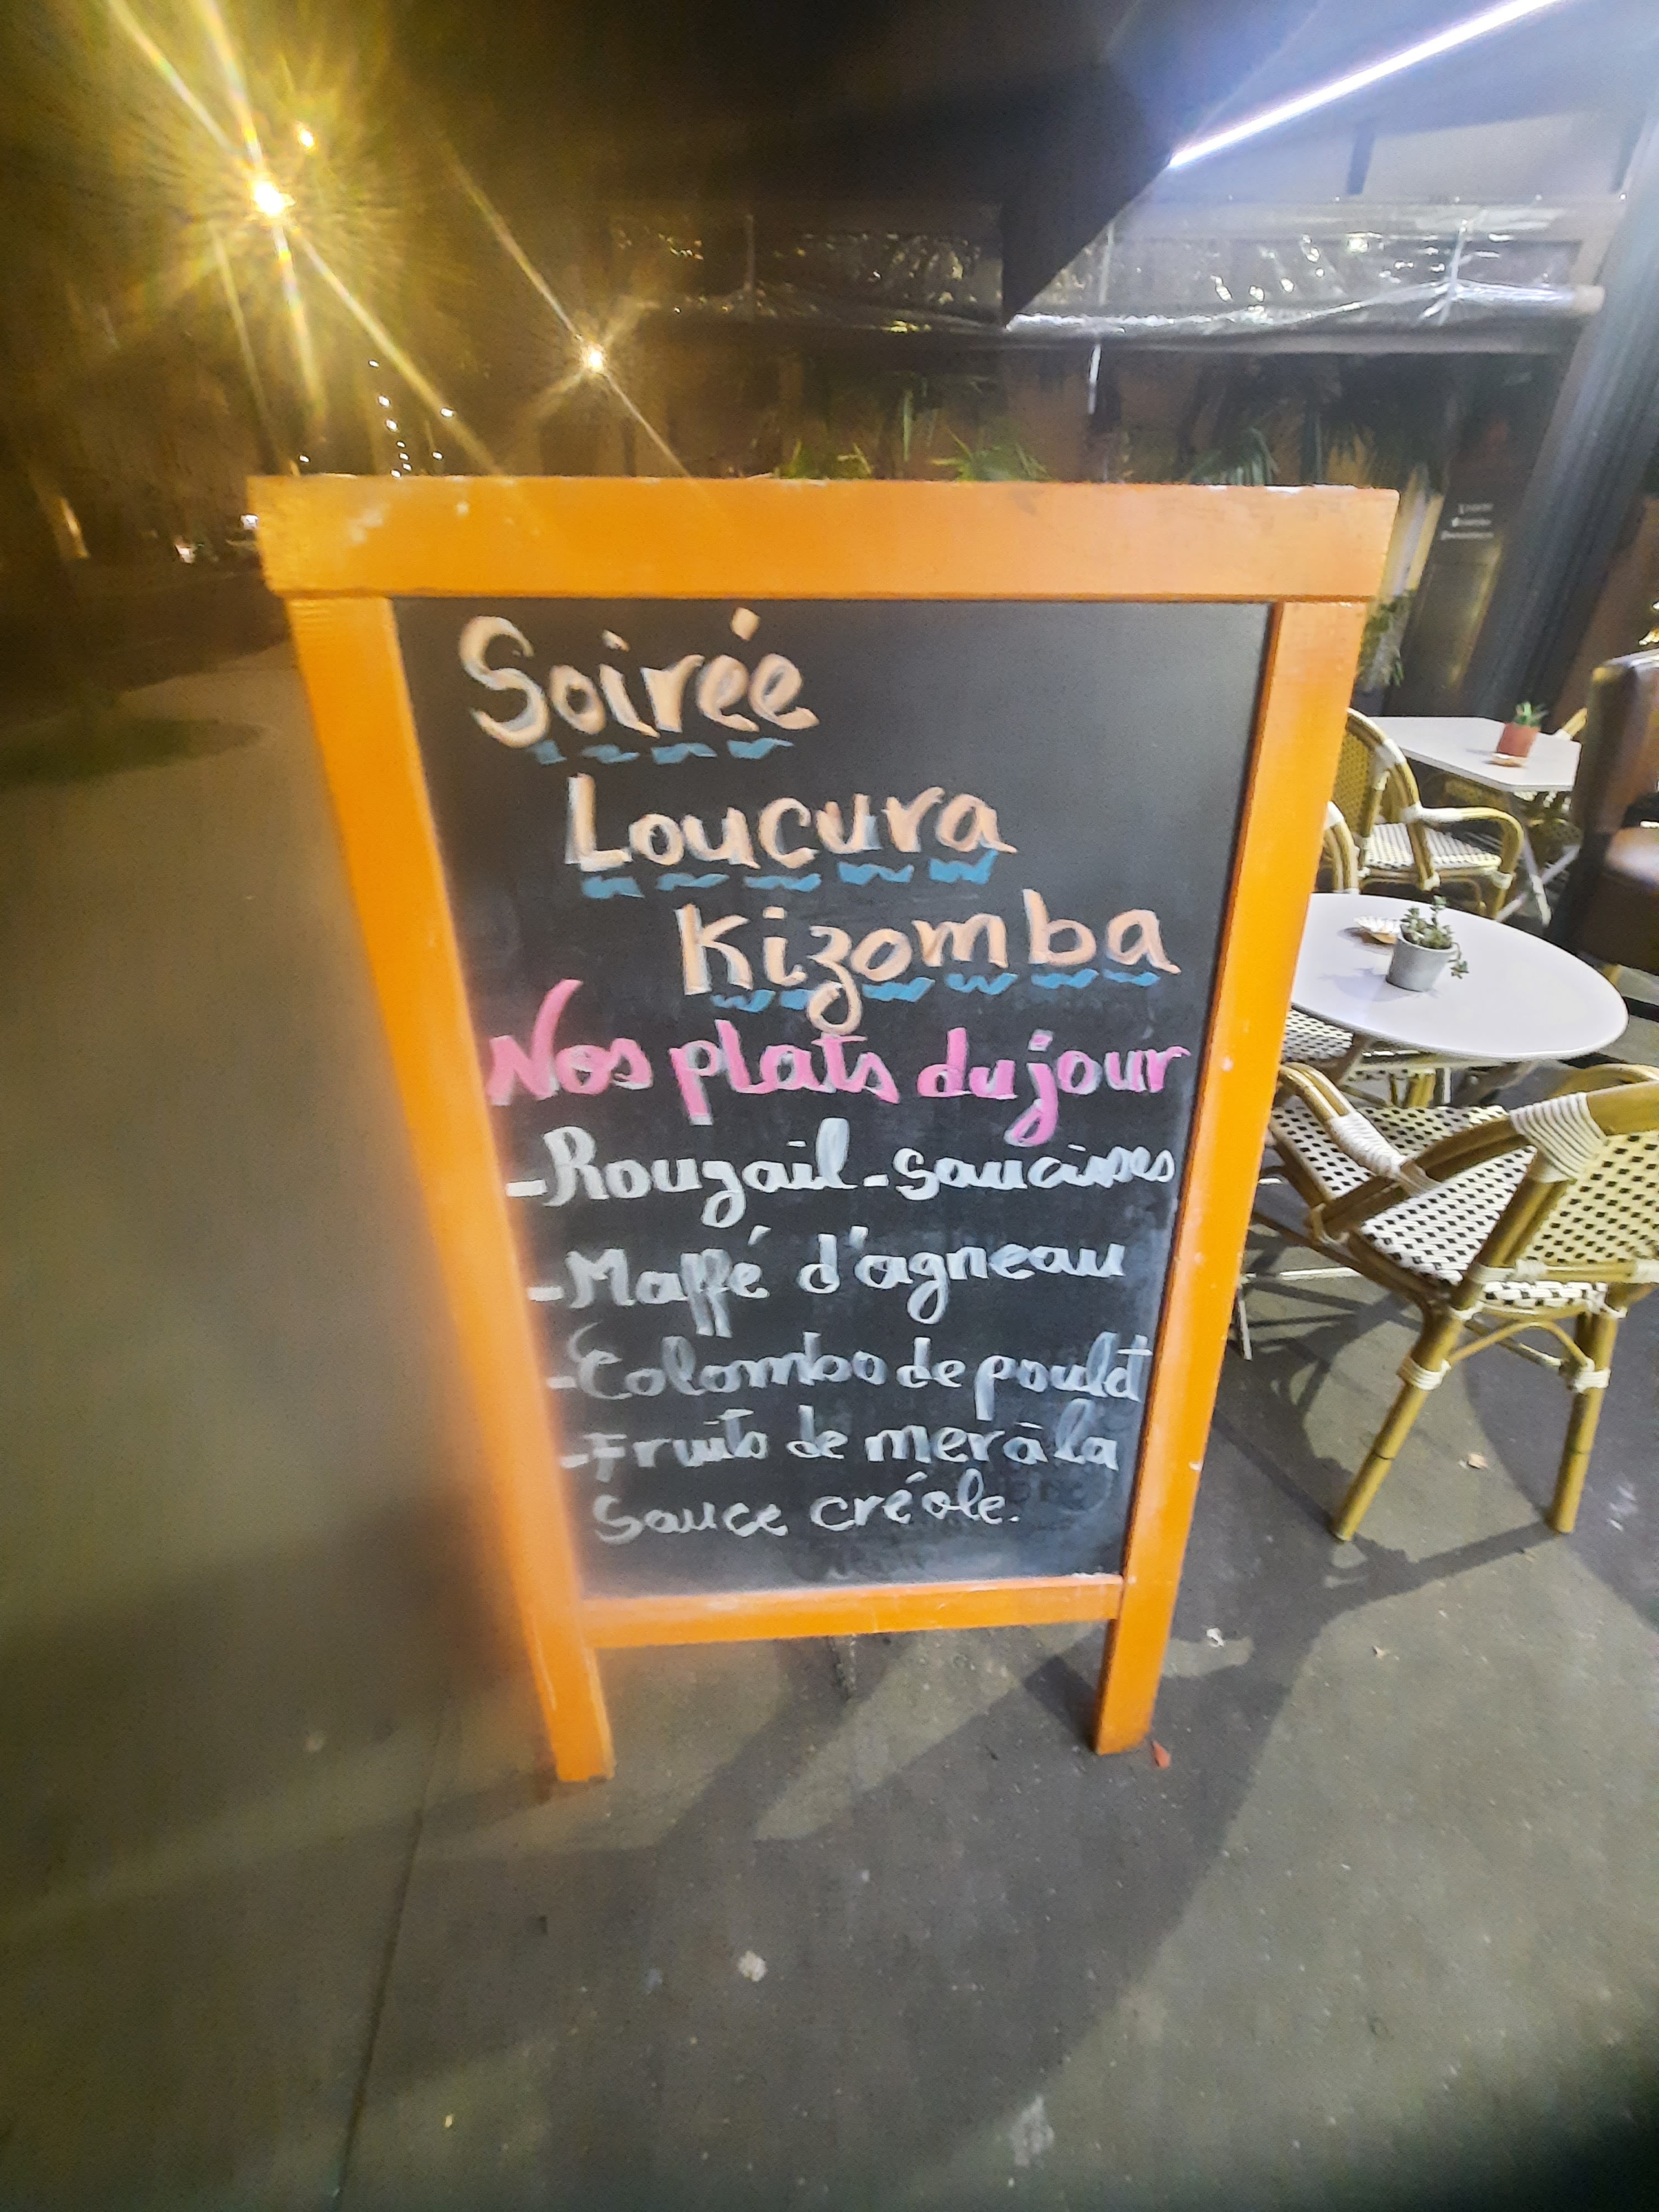 Soirée
Loucura
Kizomba
Nos plats du jour
- Rougail - saucisses
- Maffé d'agneau
- Colombo de poulet
- Fruits de mer à la
sauce créole.